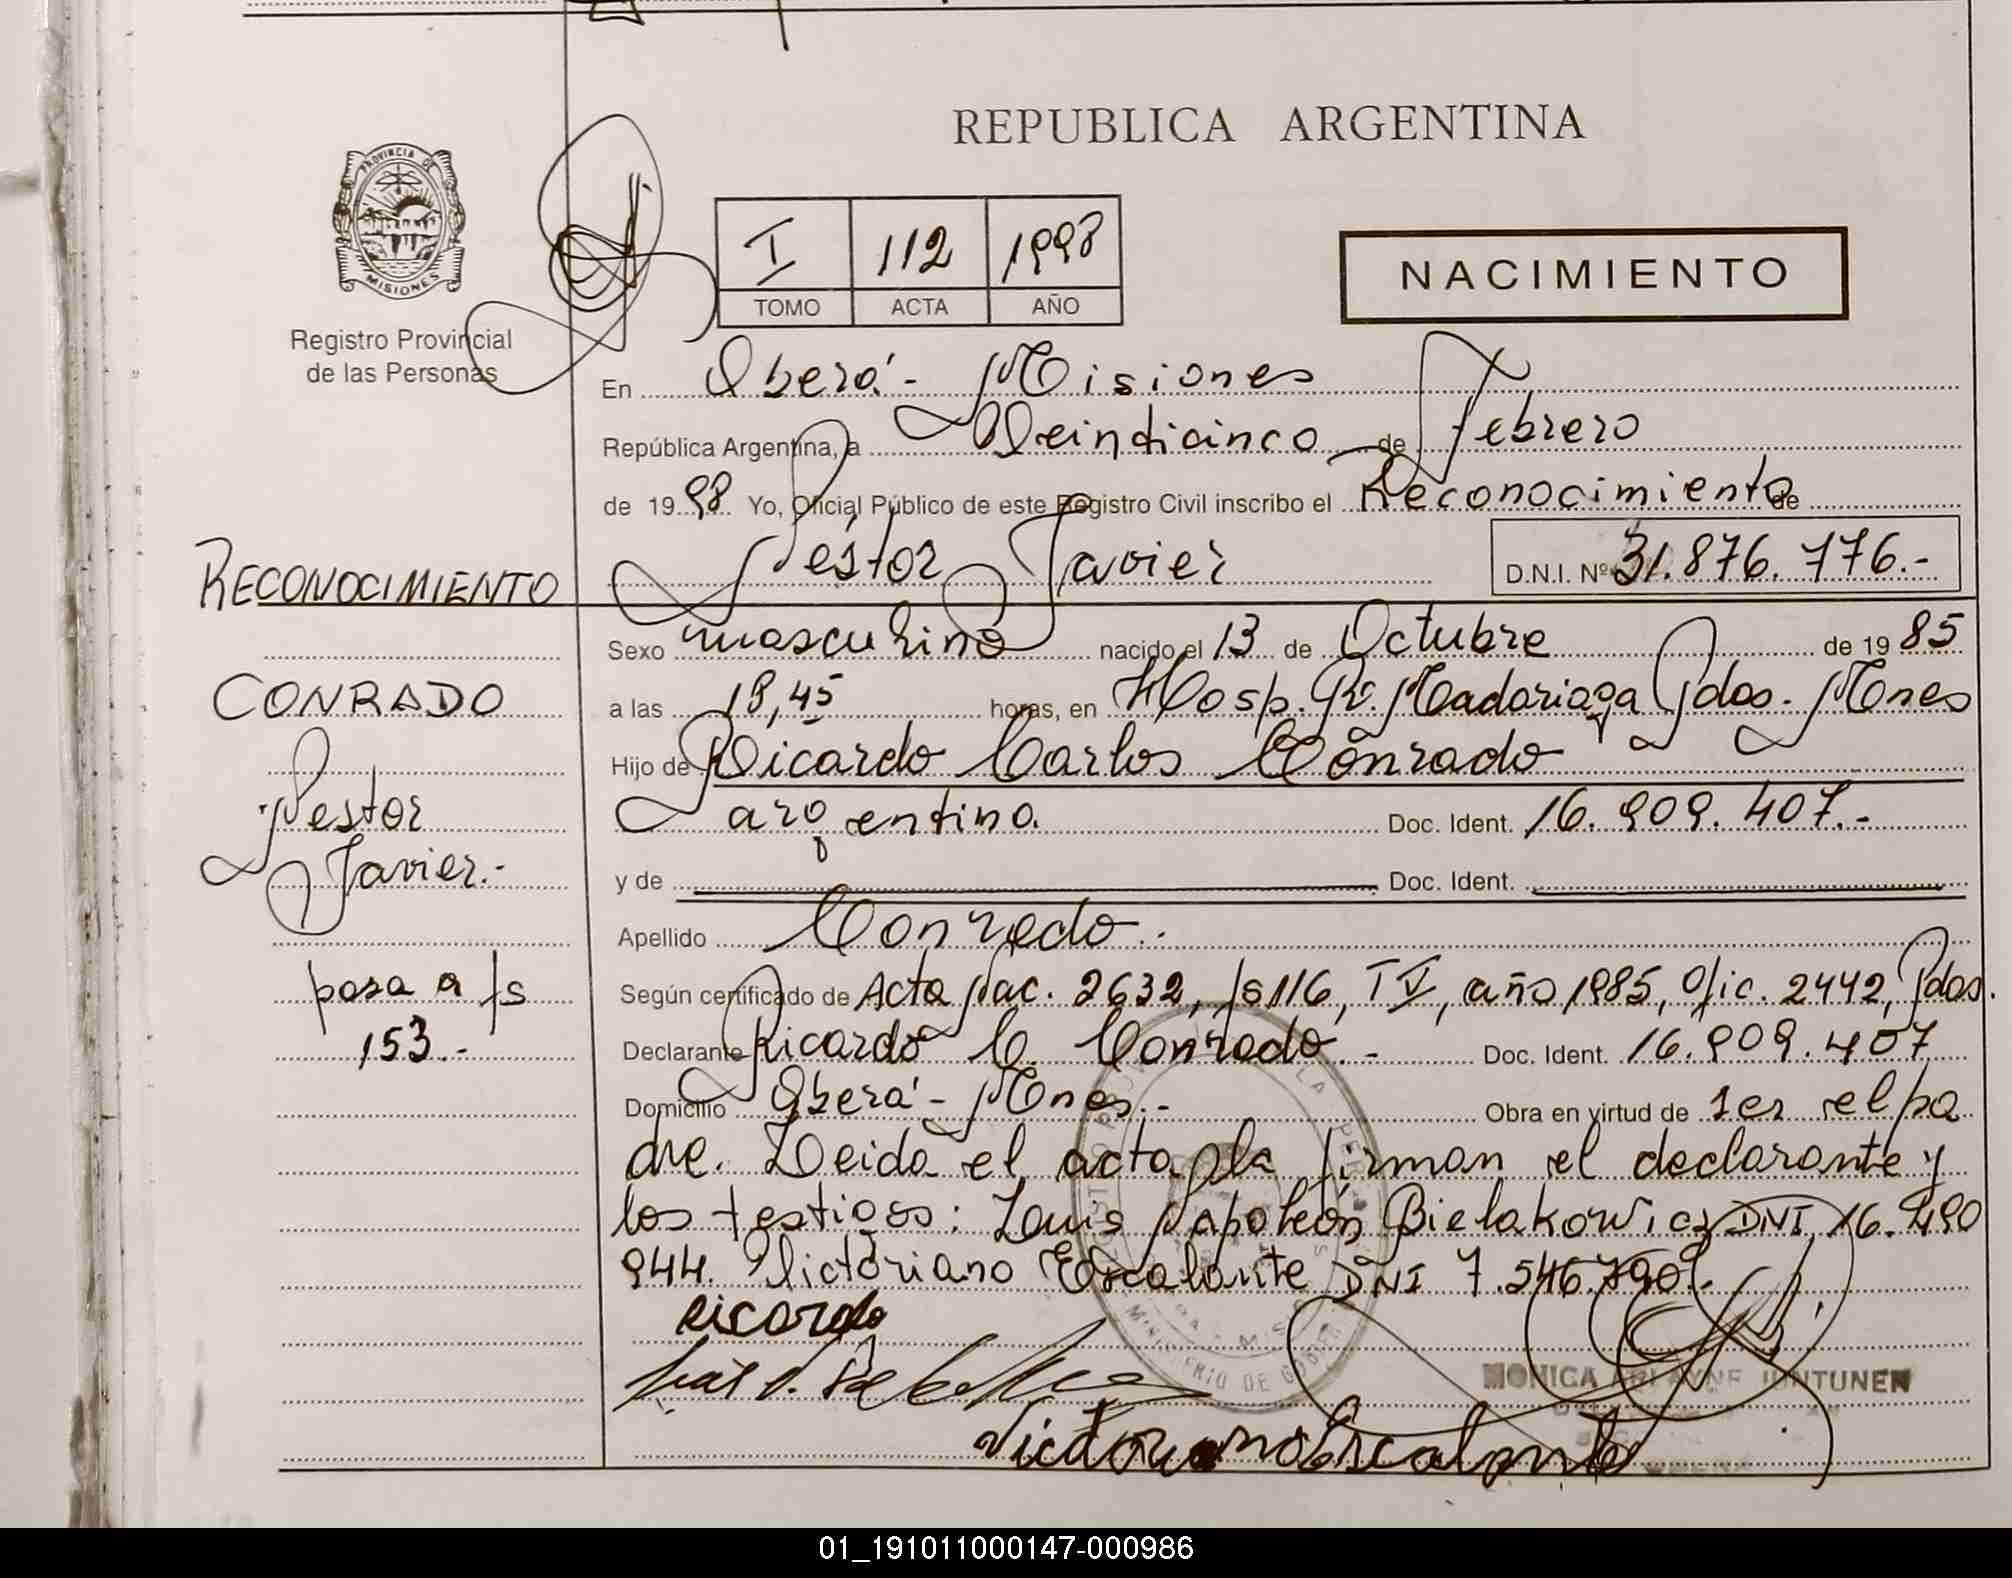 REPUBLICA ARGENTINA
PROVINCIA DE
MISIONES
Registro Provincial
de las Personas
I 112 1998
TOMO ACTA AÑO
NACIMIENTO
En Oberá - Misiones
República Argentina, a Veinticinco de Febrero
de 1998 Yo, Oficial Público de este Registro Civil inscribo el Reconocimiento de
Néstor Javier D.N.I. Nº 31.876.776.-
RECONOCIMIENTO
Sexo masculino nacido el 13 de Octubre de 1985
CONRADO
a las 18,45 horas, en Hosp. R. Madariaga Pdas. Mnes
Hijo de Ricardo Carlos Conrado
Nestor
argentino Doc. Ident. 16.909.407.-
Javier.-
y de Doc. Ident.
Apellido Conrado.-
pasa a fs
Según certificado de Acta Nac. 2632, fs 116, T V, año 1985, Ofic. 2442, Pdas.
153.-
Declarante Ricardo C. Conrado.- Doc. Ident. 16.909.407
Domicilio Oberá - Mnes.- Obra en virtud de ser el pa
dre. Leida el acta la firman el declarante y
los testigos: Luis Napoleón Bielakowicz DNI 16.490
944. Victoriano Escalante DNI 7.546.790.-
Ricardo
MONICA JUNTUNEN
MINISTERIO DE
Victoriano Escalante
01_191011000147-000986